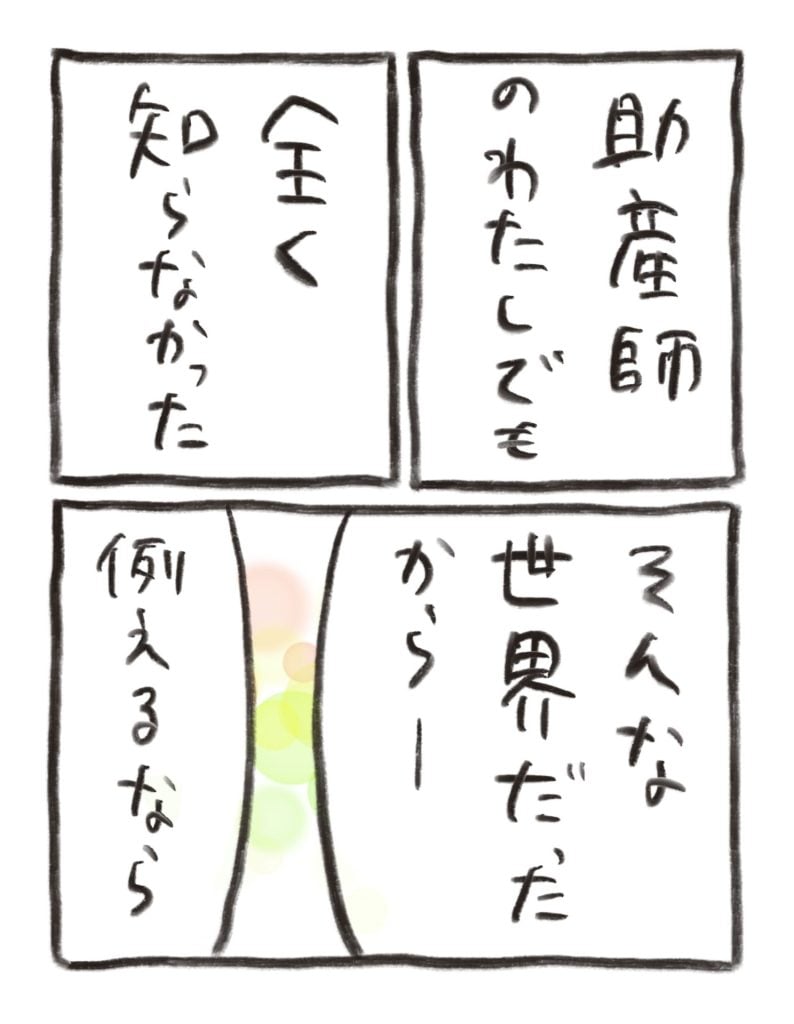 助産師
のわたしでも
全く
知らなかった
そんな
世界だった
からー
例えるなら